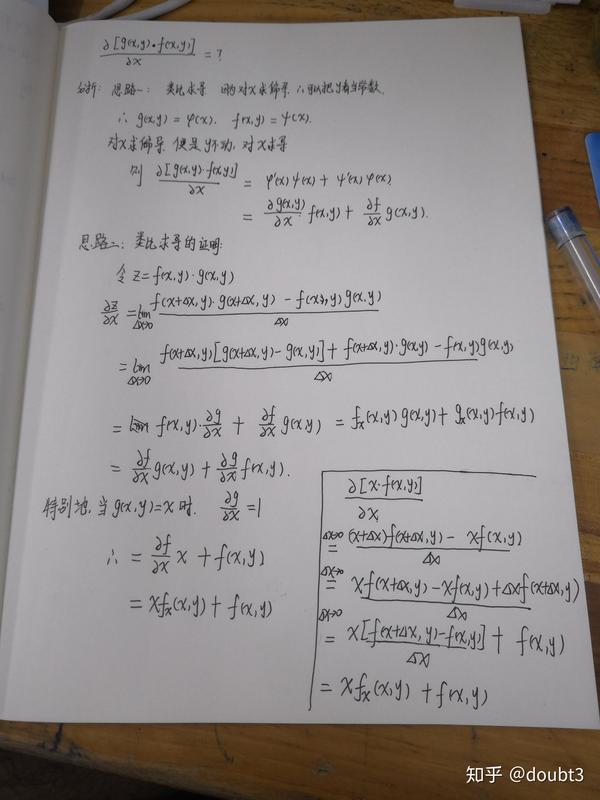 ∂[g(x,y)·f(x,y)]/∂x = ?
分析: 思路一: 类比求导 因为对x求偏导 ∴可以把y看当常数.
∴ g(x,y) = φ(x). f(x,y) = ψ(x).
对x求偏导, 便是y不动, 对x求导
则 ∂[g(x,y)·f(x,y)]/∂x = φ'(x)ψ(x) + ψ'(x)φ(x)
= ∂g(x,y)/∂x · f(x,y) + ∂f/∂x g(x,y).
思路二: 类比求导的证明:
令 z = f(x,y)·g(x,y)
∂z/∂x = lim Δx→0 [f(x+Δx,y)·g(x+Δx,y) - f(x,y)g(x,y)]/Δx
= lim Δx→0 {f(x+Δx,y)[g(x+Δx,y) - g(x,y)] + f(x+Δx,y)·g(x,y) - f(x,y)g(x,y)}/Δx
= f(x,y)·∂g/∂x + ∂f/∂x g(x,y) = fx(x,y)g(x,y) + gx(x,y)f(x,y)
= ∂f/∂x g(x,y) + ∂g/∂x f(x,y).
特别地, 当g(x,y)=x时. ∂g/∂x = 1
∴ = ∂f/∂x x + f(x,y)
= xfx(x,y) + f(x,y)
∂[x·f(x,y)]/∂x
Δx→0 = [(x+Δx)f(x+Δx,y) - xf(x,y)]/Δx
Δx→0 = [xf(x+Δx,y) - xf(x,y) + Δxf(x+Δx,y)]/Δx
Δx→0 = x[f(x+Δx,y) - f(x,y)]/Δx + f(x,y)
= xfx(x,y) + f(x,y)
知乎 @doubt3